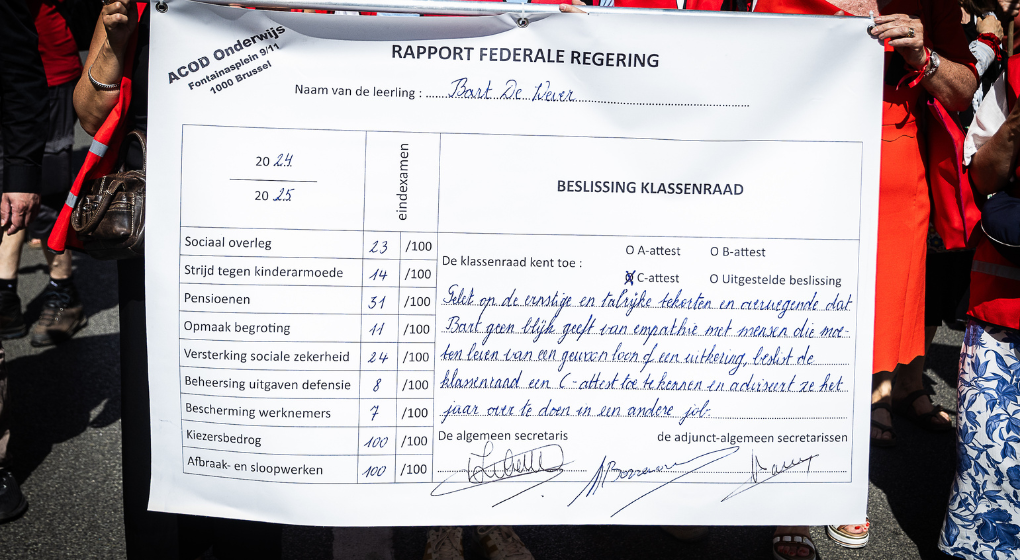 ACOD Onderwijs
Fontainasplein 9/11
1000 Brussel
RAPPORT FEDERALE REGERING
Naam van de leerling : Bart De Wever
2024
2025
eindexamen
BESLISSING KLASSENRAAD
Sociaal overleg 23 /100
Strijd tegen kinderarmoede 14 /100
Pensioenen 31 /100
Opmaak begroting 11 /100
Versterking sociale zekerheid 24 /100
Beheersing uitgaven defensie 8 /100
Bescherming werknemers 7 /100
Kiezersbedrog 100 /100
Afbraak- en sloopwerken 100 /100
De klassenraad kent toe :
O A-attest O B-attest
C-attest O Uitgestelde beslissing
Gelet op de ernstige en talrijke tekorten en overwegende dat
Bart geen blijk geeft van empathie met mensen die moe-
ten leven van een gewoon loon of een uitkering, beslist de
klassenraad een C-attest toe te kennen en adviseert ze het
jaar over te doen in een andere job.
De algemeen secretaris de adjunct-algemeen secretarissen